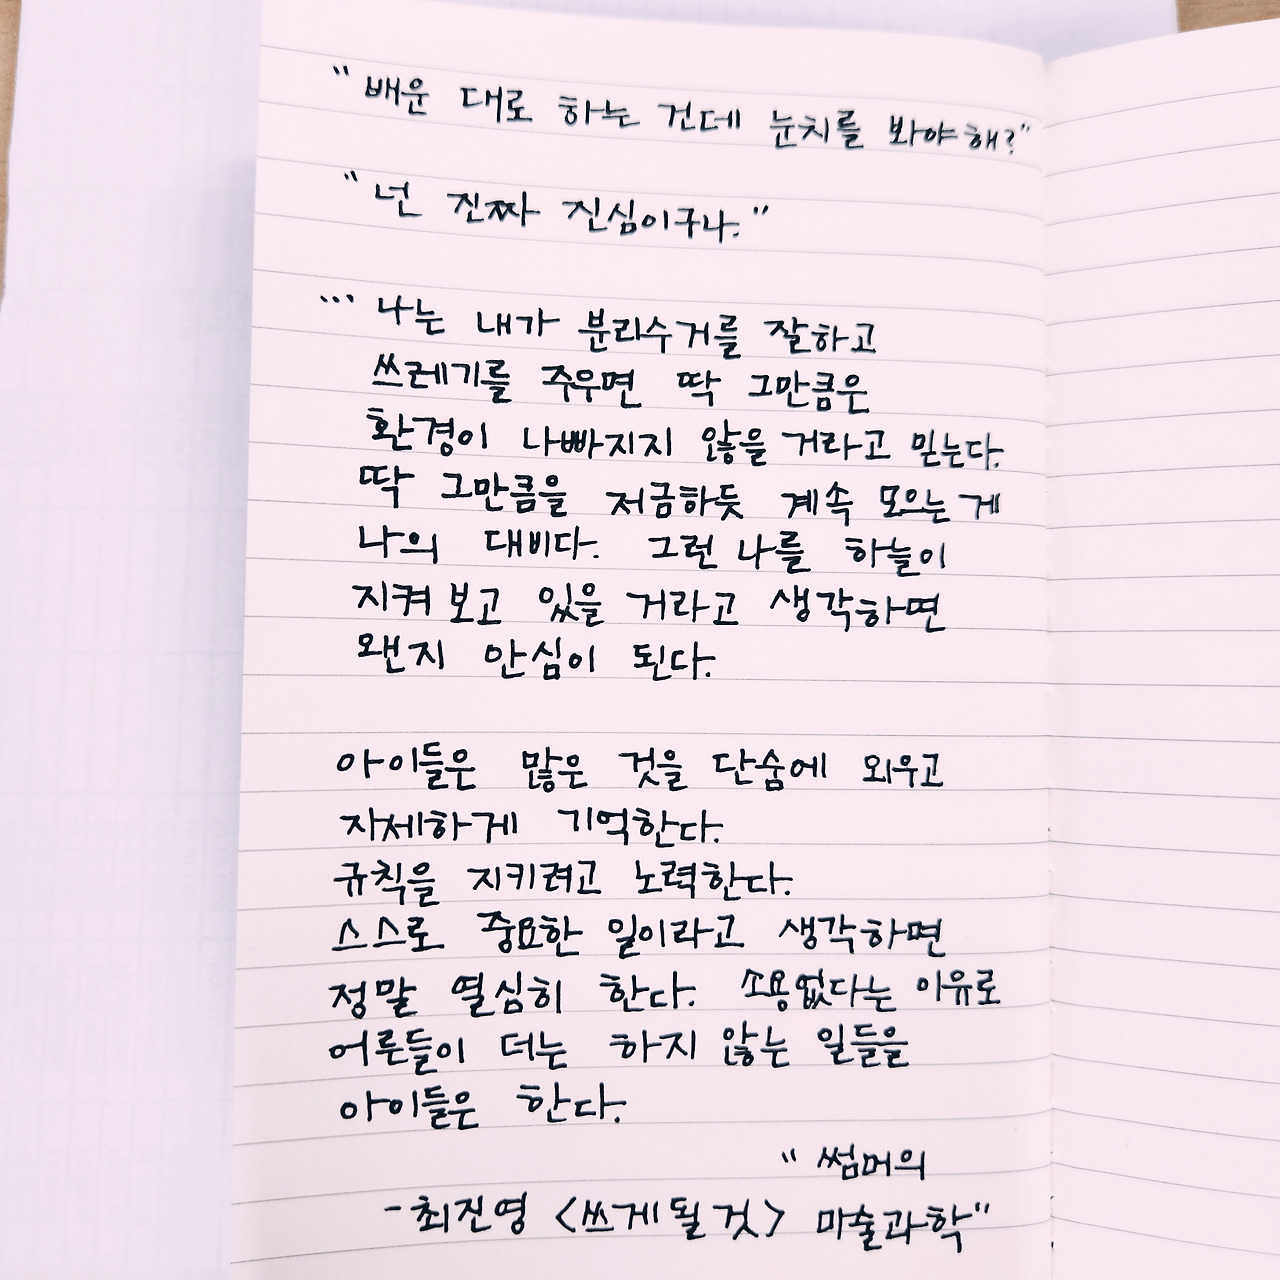 "배운 대로 하는 건데 눈치를 봐야해?"
"넌 진짜 진심이구나."
... 나는 내가 분리수거를 잘하고
쓰레기를 주우면 딱 그만큼은
환경이 나빠지지 않을 거라고 믿는다.
딱 그만큼을 저금하듯 계속 모으는 게
나의 대비다. 그런 나를 하늘이
지켜 보고 있을 거라고 생각하면
왠지 안심이 된다.
아이들은 많은 것을 단숨에 외우고
자세하게 기억한다.
규칙을 지키려고 노력한다.
스스로 중요한 일이라고 생각하면
정말 열심히 한다. 소용없다는 이유로
어른들이 더는 하지 않는 일들을
아이들은 한다.
"썸머의
-최진영 <쓰게될것> 마술과학"